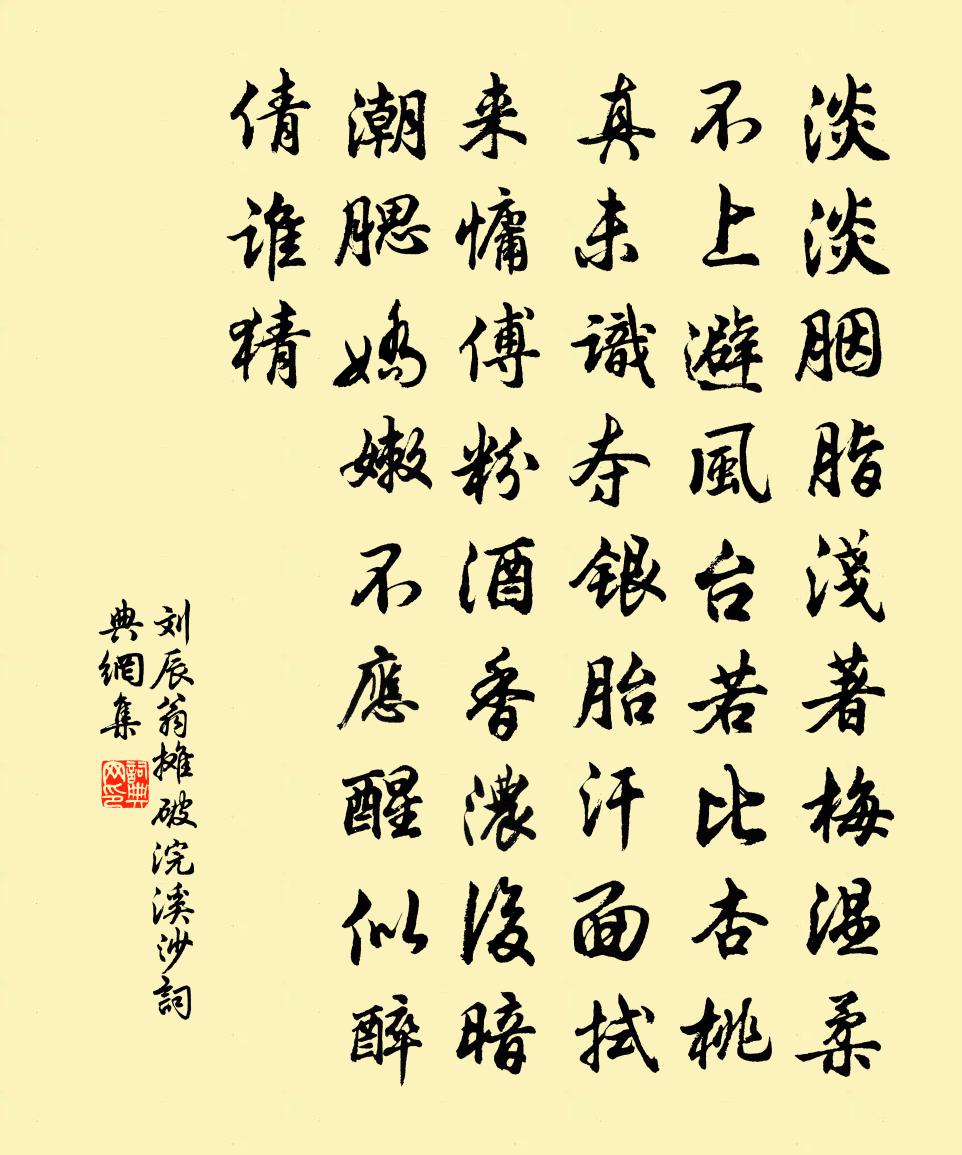 淡淡胭脂淺著梅溫柔
不上避風台若比杏桃
真未識夺銀胎汗面拭
来慵傅粉酒香濃後暗
潮腮嬌嫩不應醒似醉
倩谁猜
刘辰翁摊破浣溪沙詞
典網集
詞典
网印